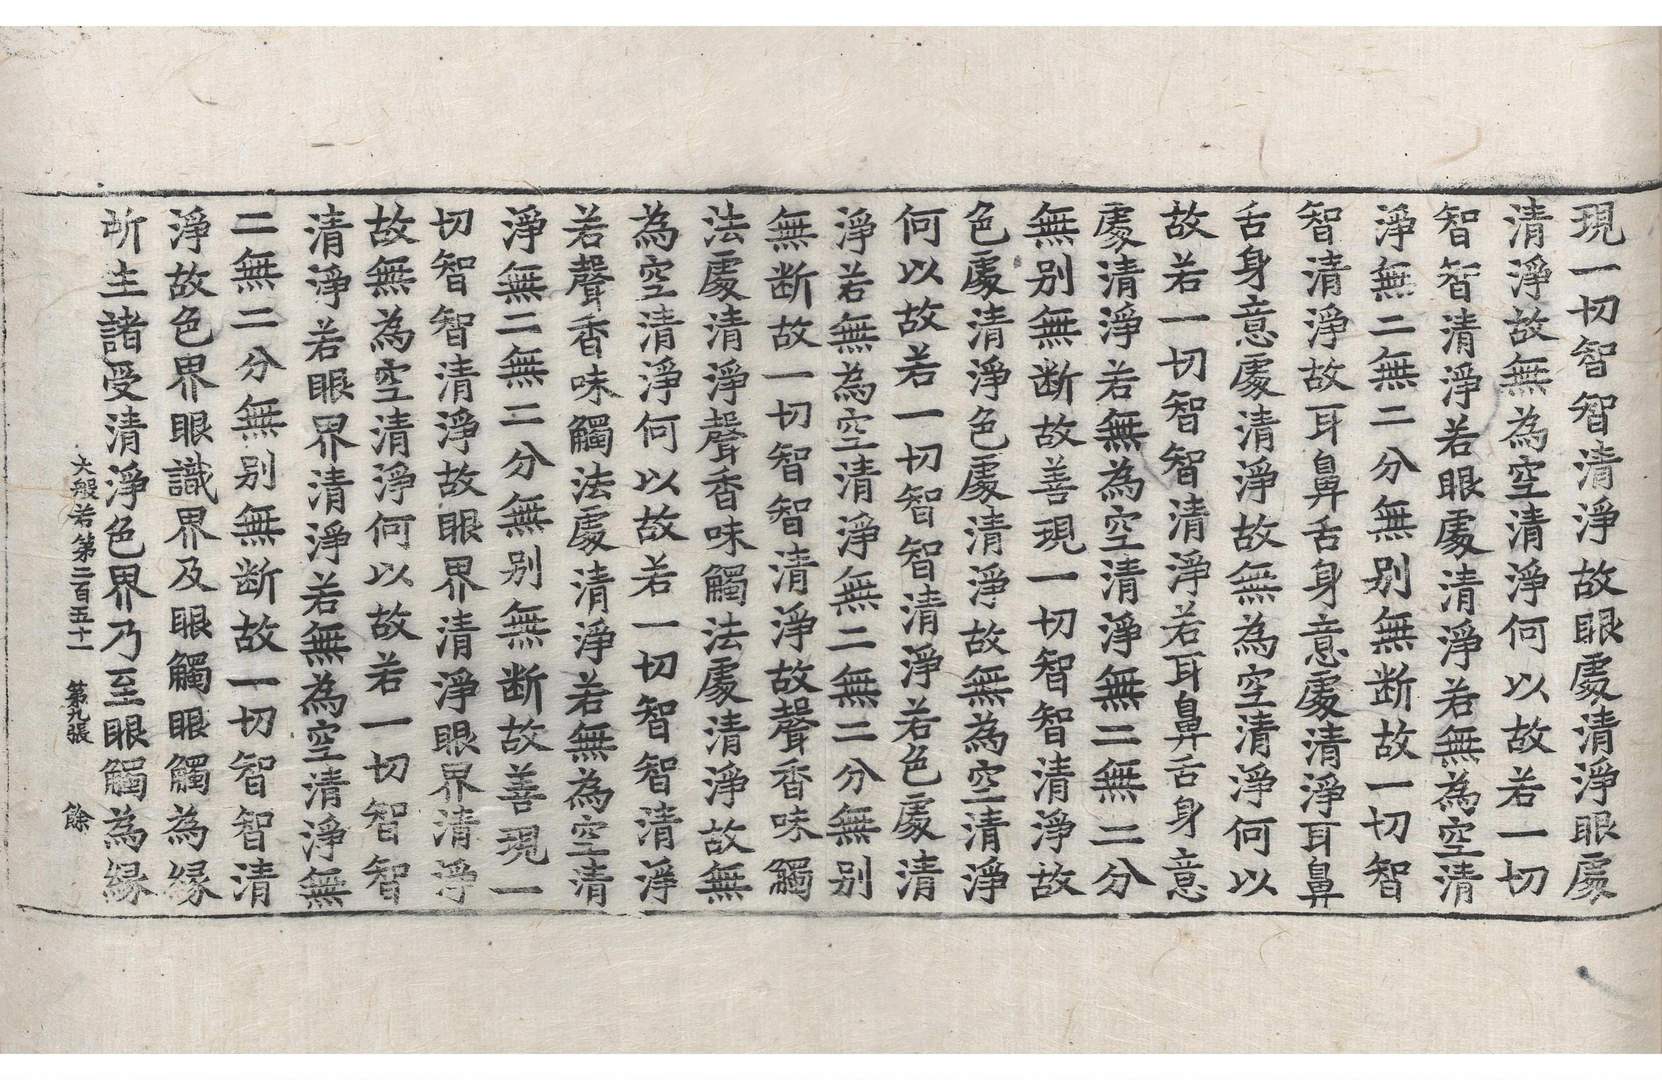 現一切智智清淨故眼處清淨眼處
清淨故無為空清淨何以故若一切
智智清淨若眼處清淨若無為空清
淨無二無二分無别無断故一切智
智清淨故耳鼻舌身意處清淨耳鼻
舌身意處清淨故無為空清淨何以
故若一切智智清淨若耳鼻舌身意
處清淨若無為空清淨無二無二分
無别無断故善現一切智智清淨故
色處清淨色處清淨故無為空清淨
何以故若一切智智清淨若色處清
淨若無為空清淨無二無二分無别
無断故一切智智清淨故聲香味觸
法處清淨聲香味觸法處清淨故無
為空清淨何以故若一切智智清淨
若聲香味觸法處清淨若無為空清
淨無二無二分無别無断故善現一
切智智清淨故眼界清淨眼界清淨
故無為空清淨何以故若一切智智
清淨若眼界清淨若無為空清淨無
二無二分無别無断故一切智智清
淨故色界眼識界及眼觸眼觸為縁
所生諸受清淨色界乃至眼觸為縁
大般若第二百五十一 第九張 餘